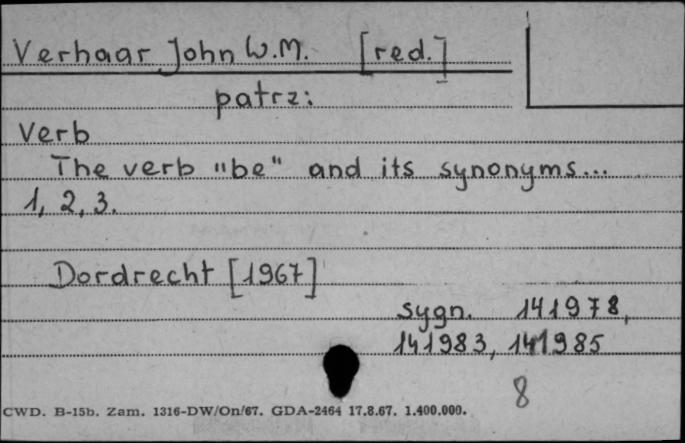 Verhaar John W.M. [red.]
patrz:
Verb
The verb "be" and its synonyms...
1, 2, 3.
Dordrecht [1967]
sygn. 141978,
141983, 141985
8
CWD. B-15b. Zam. 1316-DW/On/67. GDA-2464 17.8.67. 1.400.000.